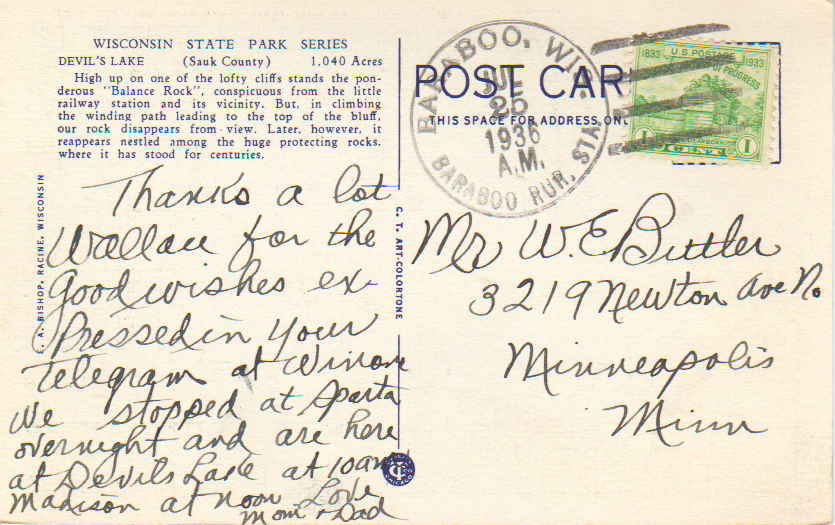 WISCONSIN STATE PARK SERIES
DEVIL'S LAKE (Sauk County) 1,040 Acres
High up on one of the lofty cliffs stands the pon-
derous "Balance Rock", conspicuous from the little
railway station and its vicinity. But, in climbing
the winding path leading to the top of the bluff,
our rock disappears from view. Later, however, it
reappears nestled among the huge protecting rocks,
where it has stood for centuries.
Thanks a lot
Wallace for the
good wishes ex-
pressed in your
Telegram at Winona
We stopped at Sparta
overnight and are here
at Devils Lake at 10am
Madison at noon Love
Mom & Dad
A. BISHOP, RACINE, WISCONSIN
C. T. ART-COLORTONE
POST CAR
THIS SPACE FOR ADDRESS ONL
BARABOO, WIS.
25
1936
A.M.
BARABOO RUR. STA.
1833 U.S. POSTAGE 1933
OF PROGRESS
1 CENT 1
Mr W.E. Buttler
3219 Newton Ave No
Minneapolis
Minn